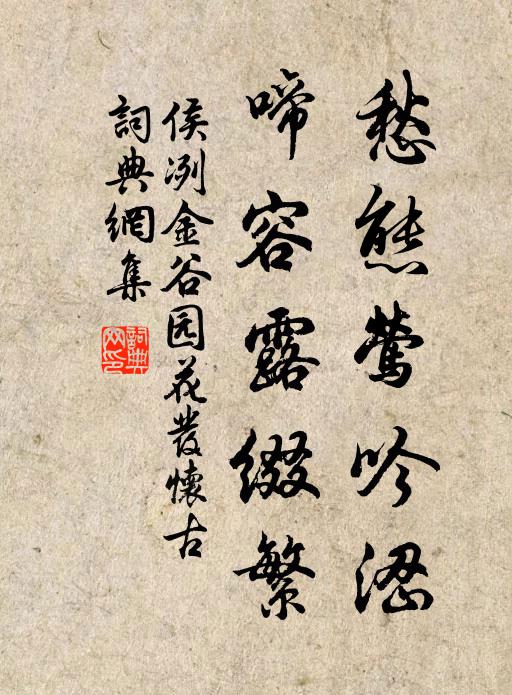 愁態鶯吟澀
啼容露綴繁
侯冽金谷园花發懷古
詞典網集
詞典网印